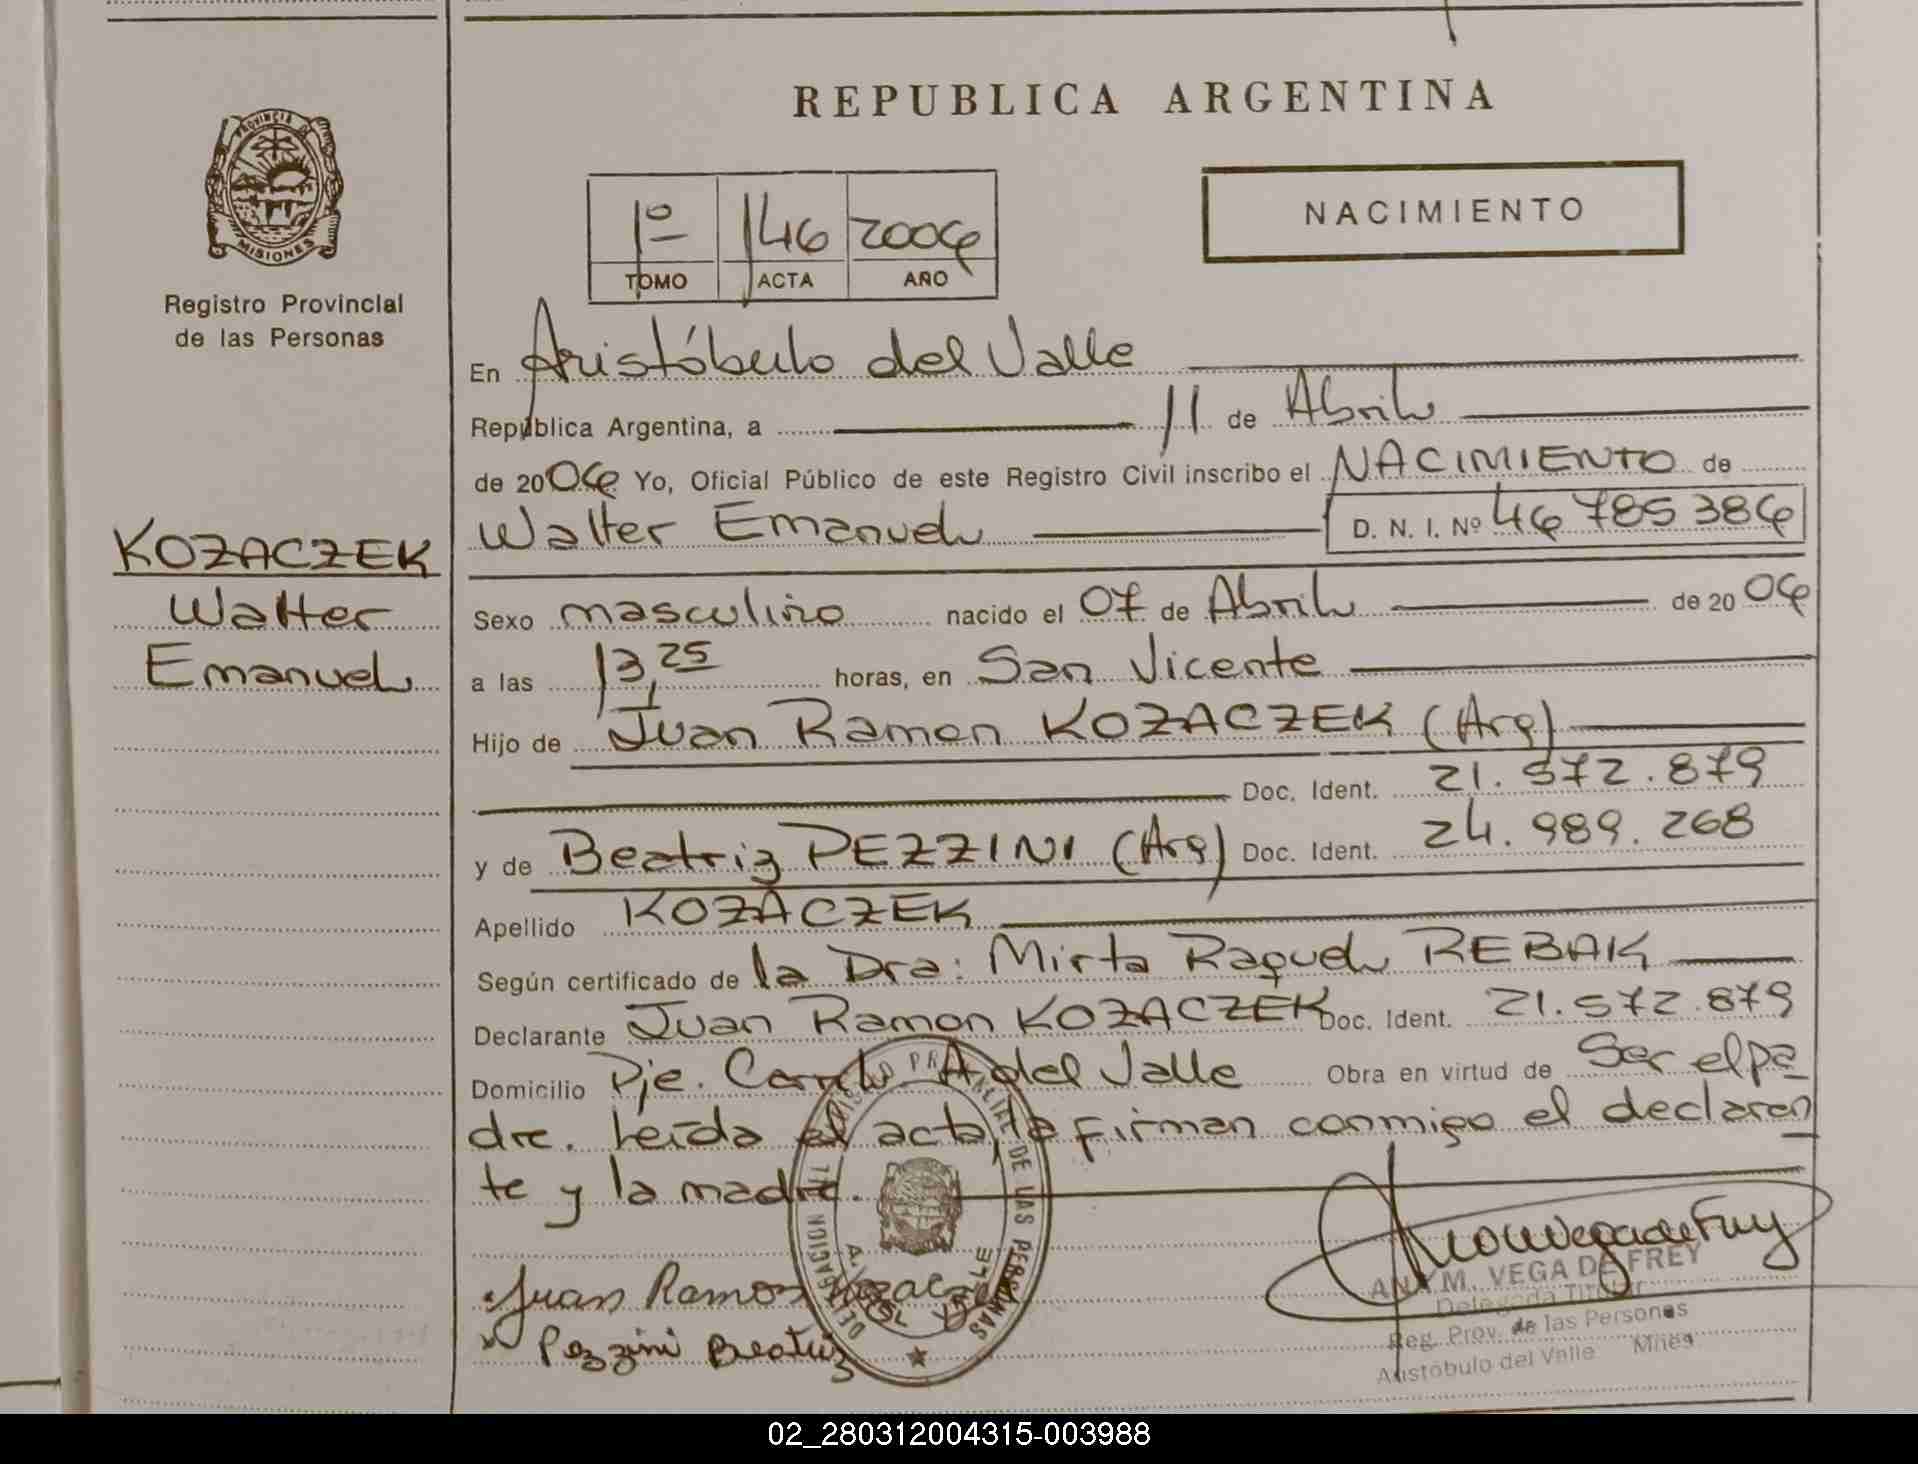 PROVINCIA DE
MISIONES
Registro Provincial
de las Personas
KOZACZEK
Walter
Emanuel
REPUBLICA ARGENTINA
1º 146 2006
TOMO ACTA AÑO
NACIMIENTO
En Aristóbulo del Valle
República Argentina, a 11 de Abril
de 2006 Yo, Oficial Público de este Registro Civil inscribo el NACIMIENTO de
Walter Emanuel D. N. I. Nº 46785386
Sexo masculino nacido el 07 de Abril de 2006
a las 13,25 horas, en San Vicente
Hijo de Juan Ramon KOZACZEK (Arg)
Doc. Ident. 21.572.879
y de Beatriz PEZZINI (Arg) Doc. Ident. 24.989.268
Apellido KOZACZEK
Según certificado de la Dra: Mirta Raquel REBAK
Declarante Juan Ramon KOZACZEK Doc. Ident. 21.572.879
Domicilio Pje. Carrillo A del Valle Obra en virtud de Ser el pa
dre. Leída el acta, la firman conmigo el declaran
te y la madre.
REGISTRO PROVINCIAL DE LAS PERSONAS
DELEGACION
A. DEL VALLE
Juan Ramon Kozaczek
Pezzini Beatriz
ANY M. VEGA DE FREY
Delegada Titular
Reg. Prov. de las Personas
Aristóbulo del Valle Mnes
02_280312004315-003988